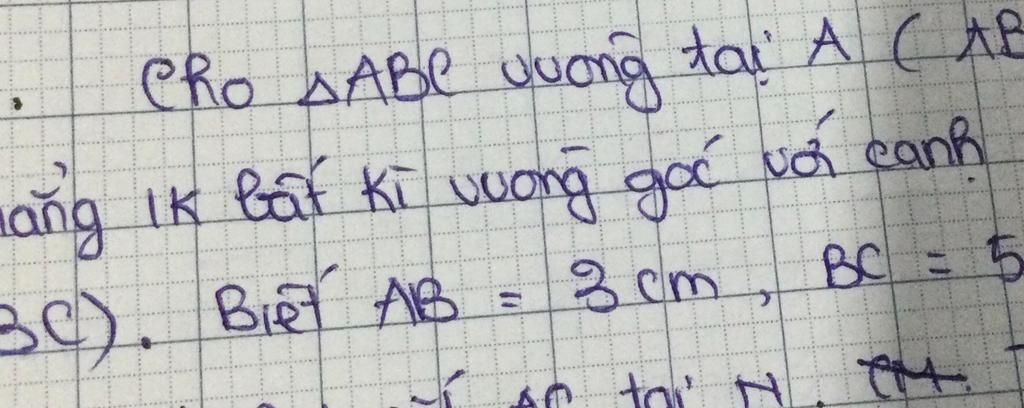 . Cho △ABC vuông tại A ( AB
IK bất kì vuông góc với cạnh
BC). Biết AB = 3 cm, BC = 5
AC tại N.